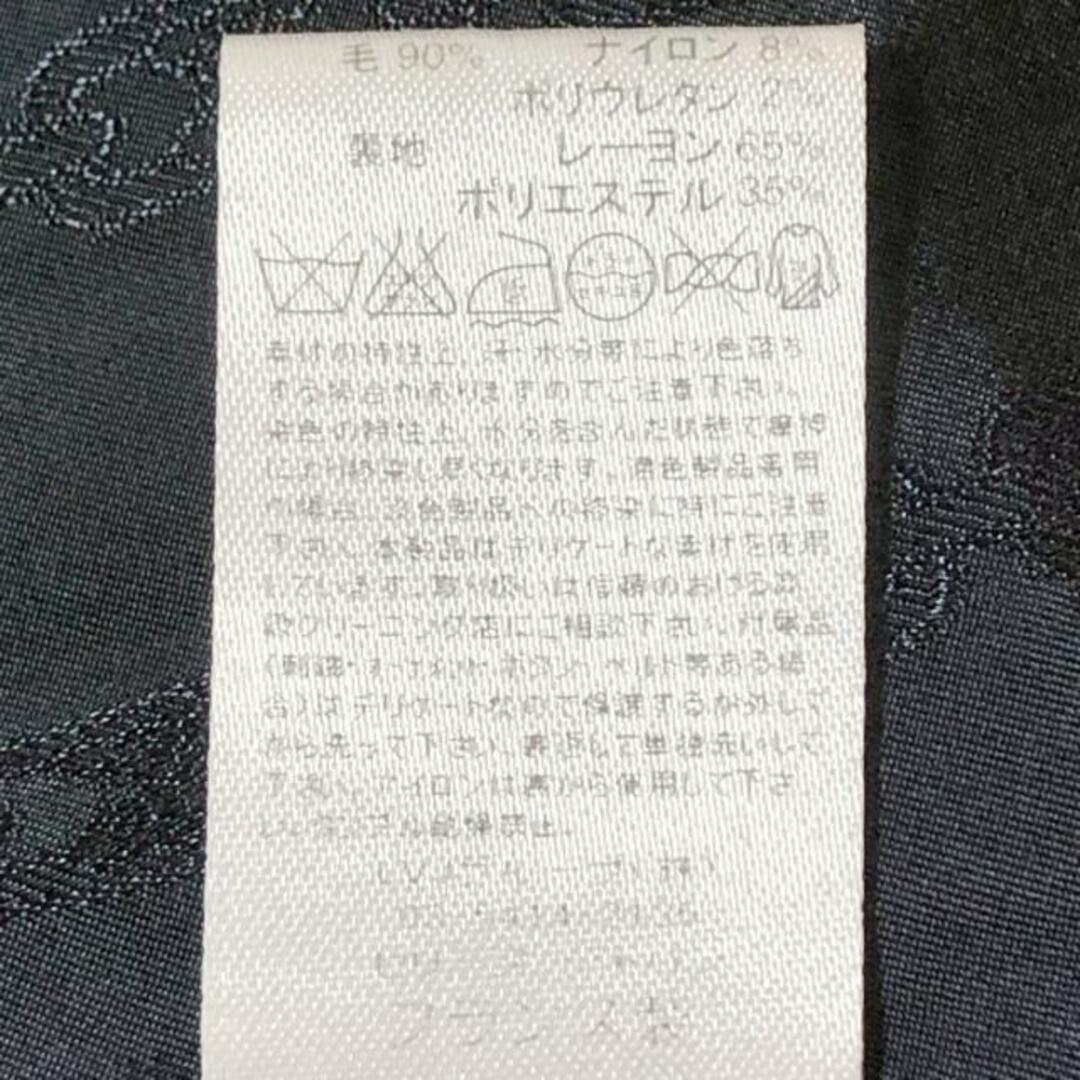 毛 90% ナイロン 8%
ポリウレタン 2%
裏地 レーヨン 65%
ポリエステル 35%
素材の特性上、汗・水分等により色落ち
する場合がありますのでご注意下さい。
染色の特性上、水分を含んだ状態で摩擦
により移染し易くなります。濃色製品着用
の場合、淡色製品への移染に特にご注意
下さい。本製品はデリケートな素材を使用
しています。取り扱いは信頼のおける高
級クリーニング店にご相談下さい。付属品
(刺繍・ ボタン・ベルト等ある場
合)はデリケートなので保護するか外して
から洗って下さい。裏返して単独洗いして
下さい。アイロンは裏から使用して下さ
い。タンブル乾燥禁止。
フランス製